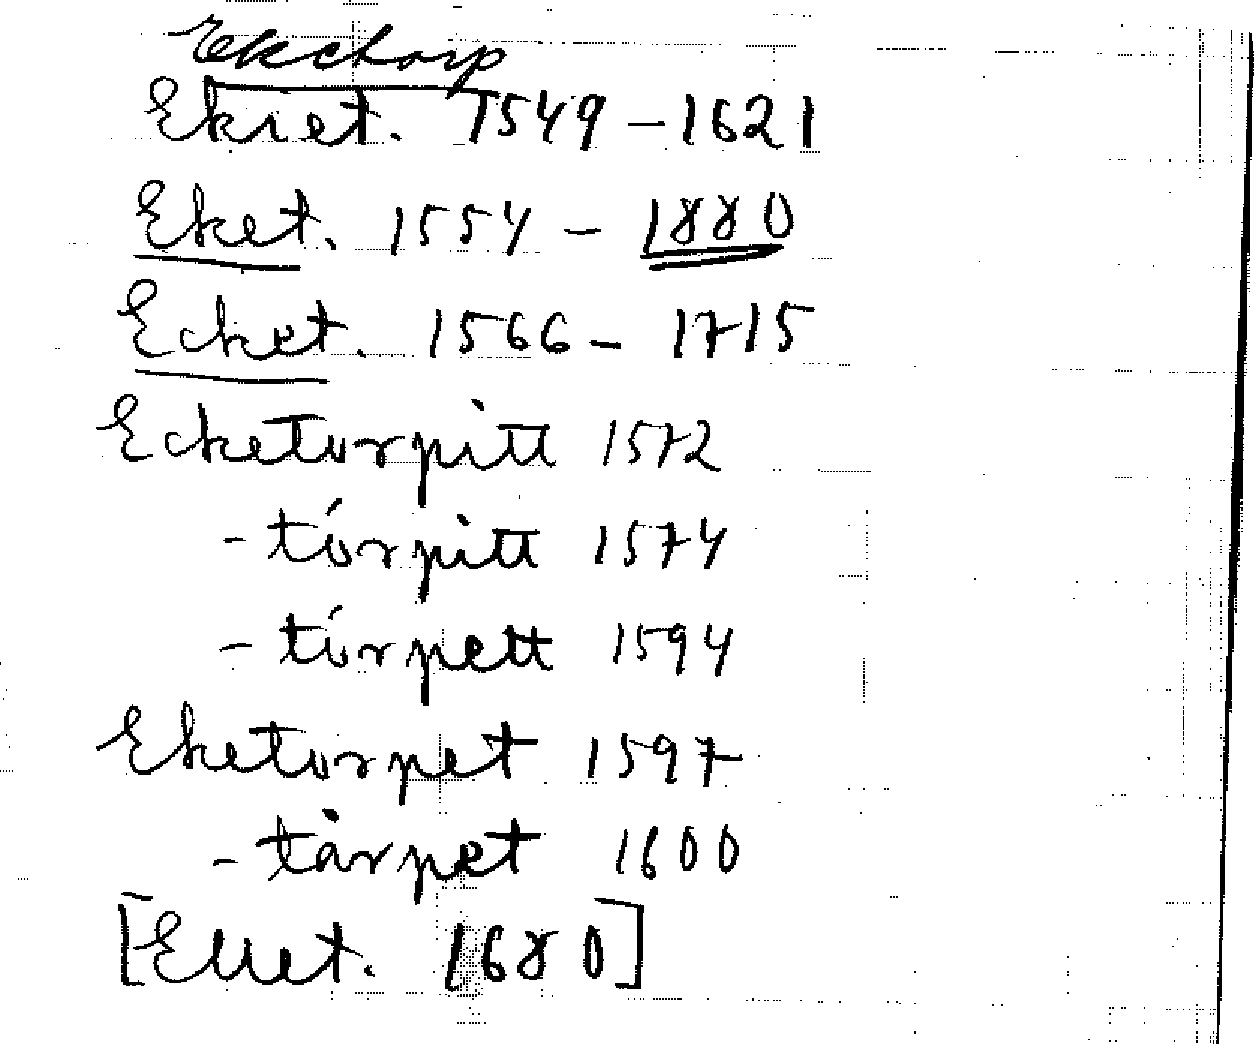 Eketorp
Ekiet. 1549 - 1621
Eket. 1554 - 1880
Ecket. 1566 - 1715
Ecketorpitt 1572
- tórpitt 1574
- tórpett 1594
Eketorpet 1597
- tårpet 1600
[Ellet. 1680]